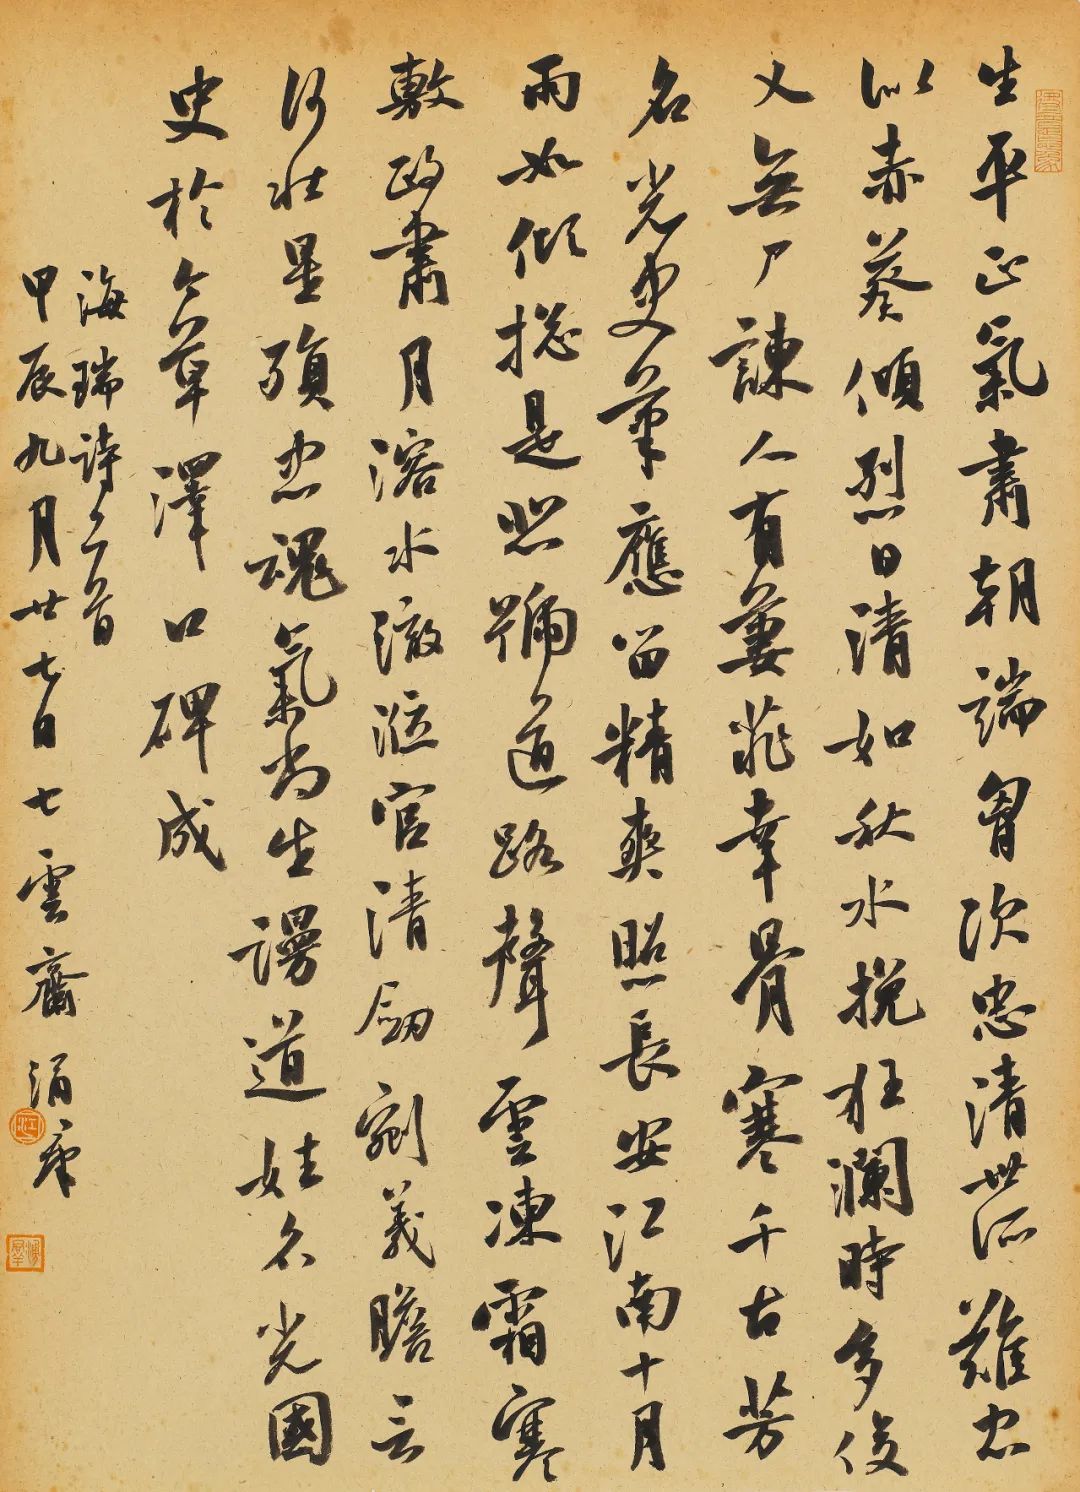 生平正氣肅朝端胷次忠清世所難忠
似赤葵傾烈日清如秋水挽狂瀾時多俊
乂無尸諫人有萋菲幸骨寒千古芳
名光史筆應留精爽照長安江南十月
雨如傾揔是悲號道路聲雲凍霜寒
敷政肅月溶水澂涖官清劒剜義膽言
何壯星殞忠魂氣尚生謾道姓名光國
史於今草澤口碑成
海瑞詩二首
甲辰九月廿七日七雲齋涓